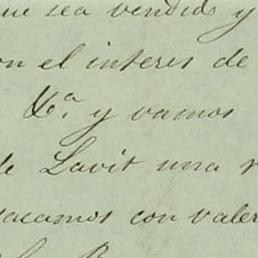 que sea vendido y
on el interes de
V.ª y vamos
de Lavit una
sacamos con valer